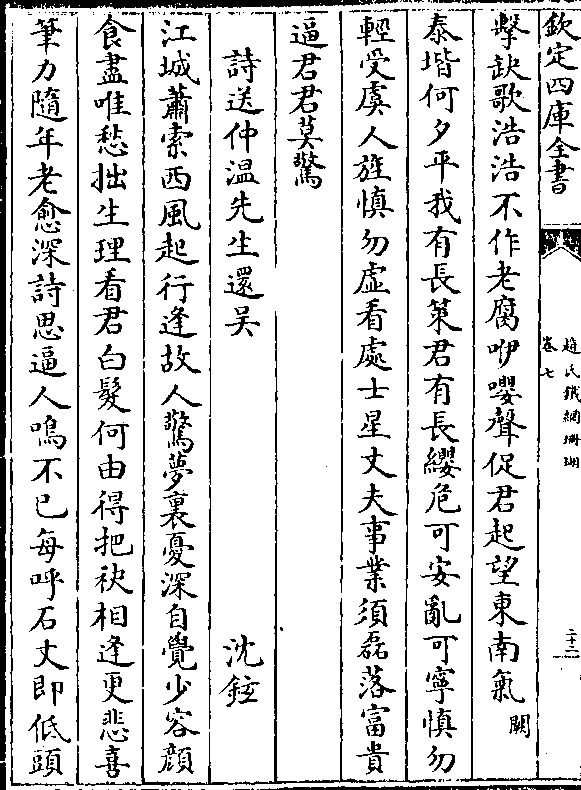 欽定四庫全書
趙氏鐵網珊瑚
卷七
二十二
擊缺歌浩浩不作老腐咿嚶聲促君起望東南氣闕
泰堦何夕平我有長策君有長纓危可安亂可寧慎勿
輕受虞人旌慎勿虛看處士星丈夫事業須磊落富貴
逼君君莫驚
詩送仲溫先生還吴
沈鉉
江城蕭索西風起行逢故人驚夢裏憂深自覺少容顔
食盡唯愁拙生理看君白髮何由得把袂相逢更悲喜
筆力隨年老愈深詩思逼人鳴不已每呼石丈即低頭